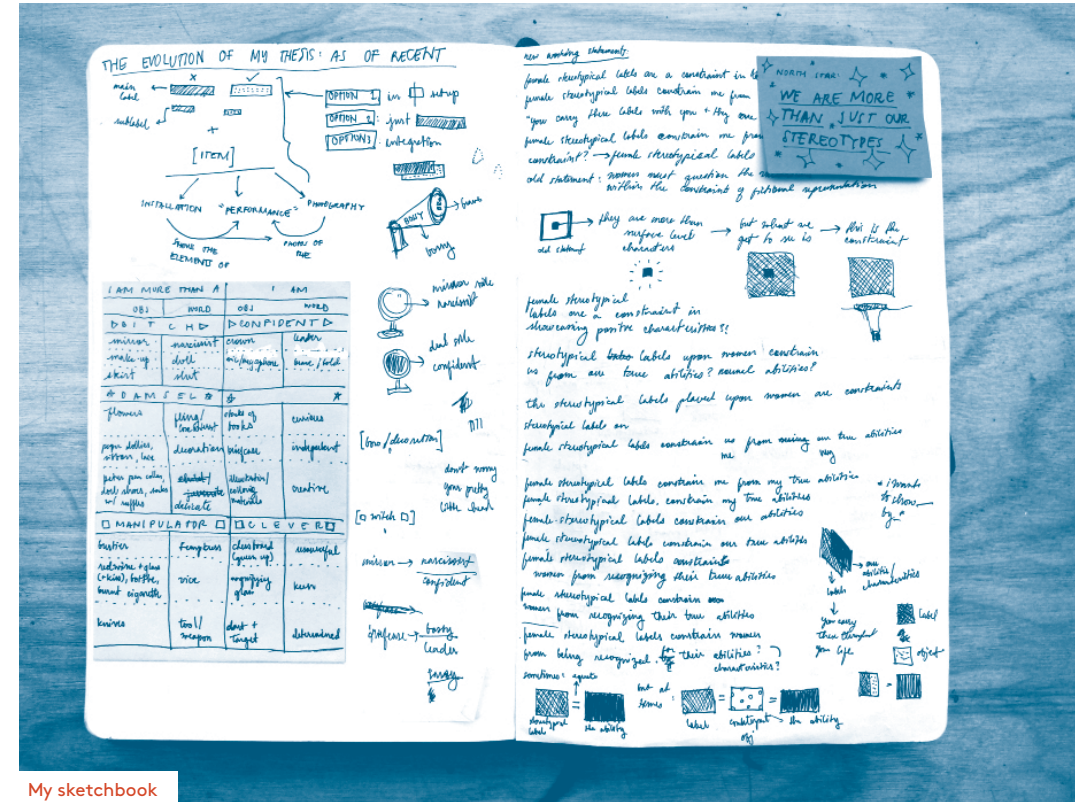 THE EVOLUTION OF MY THESIS: AS OF RECENT
main label
sublabel
OPTION 1 in setup
OPTION 2: just
OPTION 3: integration
[ITEM]
INSTALLATION "PERFORMANCE" PHOTOGRAPHY
SHOWS THE ELEMENTS OF
PHOTOS OF THE
BOSSY
brave
bossy
I AM MORE THAN A I AM
OBJ WORD OBJ WORD
BITCH CONFIDENT
mirror narcissist crown leader
make-up doll mic/megaphone brave/bold
skirt slut
DAMSEL
flowers fling/ stacks of books curious
paper doilies, ribbon, lace decoration briefcase independent
peter pan collar, delicate illustration/ coloring materials creative
MANIPULATOR CLEVER
bustier temptress chessboard (queen up) resourceful
red wine + glass (+ kiss), bottle, burnt cigarette vice magnifying glass keen
knives tool/weapon dart + target determined
mirror side narcissist
dual side confident
[bow/decoration]
don't worry your pretty little head
[switch]
mirror → narcissist
confident
briefcase → bossy
leader
new working statements:
female stereotypical labels are a constraint in
female stereotypical labels constrain me from
"you carry these labels with you + they are
female stereotypical labels constrain me from
constraint? → female stereotypical labels
old statement: women must question the
within the constraint of fictional representation
NORTH STAR:
WE ARE MORE
THAN JUST OUR
STEREOTYPES
old statement
they are more than surface level characters → but what we get to see is → this is the constraint
female stereotypical
labels are a constraint in
showcasing positive characteristics??
stereotypical labels upon women constrain
us from our true abilities? normal abilities?
the stereotypical labels placed upon women are constraints
stereotypical label on
female stereotypical labels constrain us from our true abilities
me my
female stereotypical labels constrain me from my true abilities
female stereotypical labels constrain my true abilities
female stereotypical labels constrain our abilities
female stereotypical labels constrain our true abilities
female stereotypical labels constraints
women from recognizing their true abilities
female stereotypical labels constrain
women from recognizing their true abilities
female stereotypical labels constrain women
from being recognized their abilities?
characteristics?
our abilities/characteristics
labels
you carry them throughout your life
label
object
sometimes:
stereotypical labels
the ability
but at times:
label
counterpart obj
the ability
My sketchbook